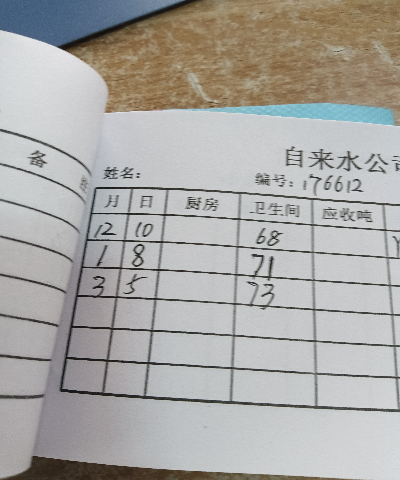 备
自来水公司
姓名：
编号：176612
月 日 厨房 卫生间 应收吨
12 10 68
1 8 71
3 5 73